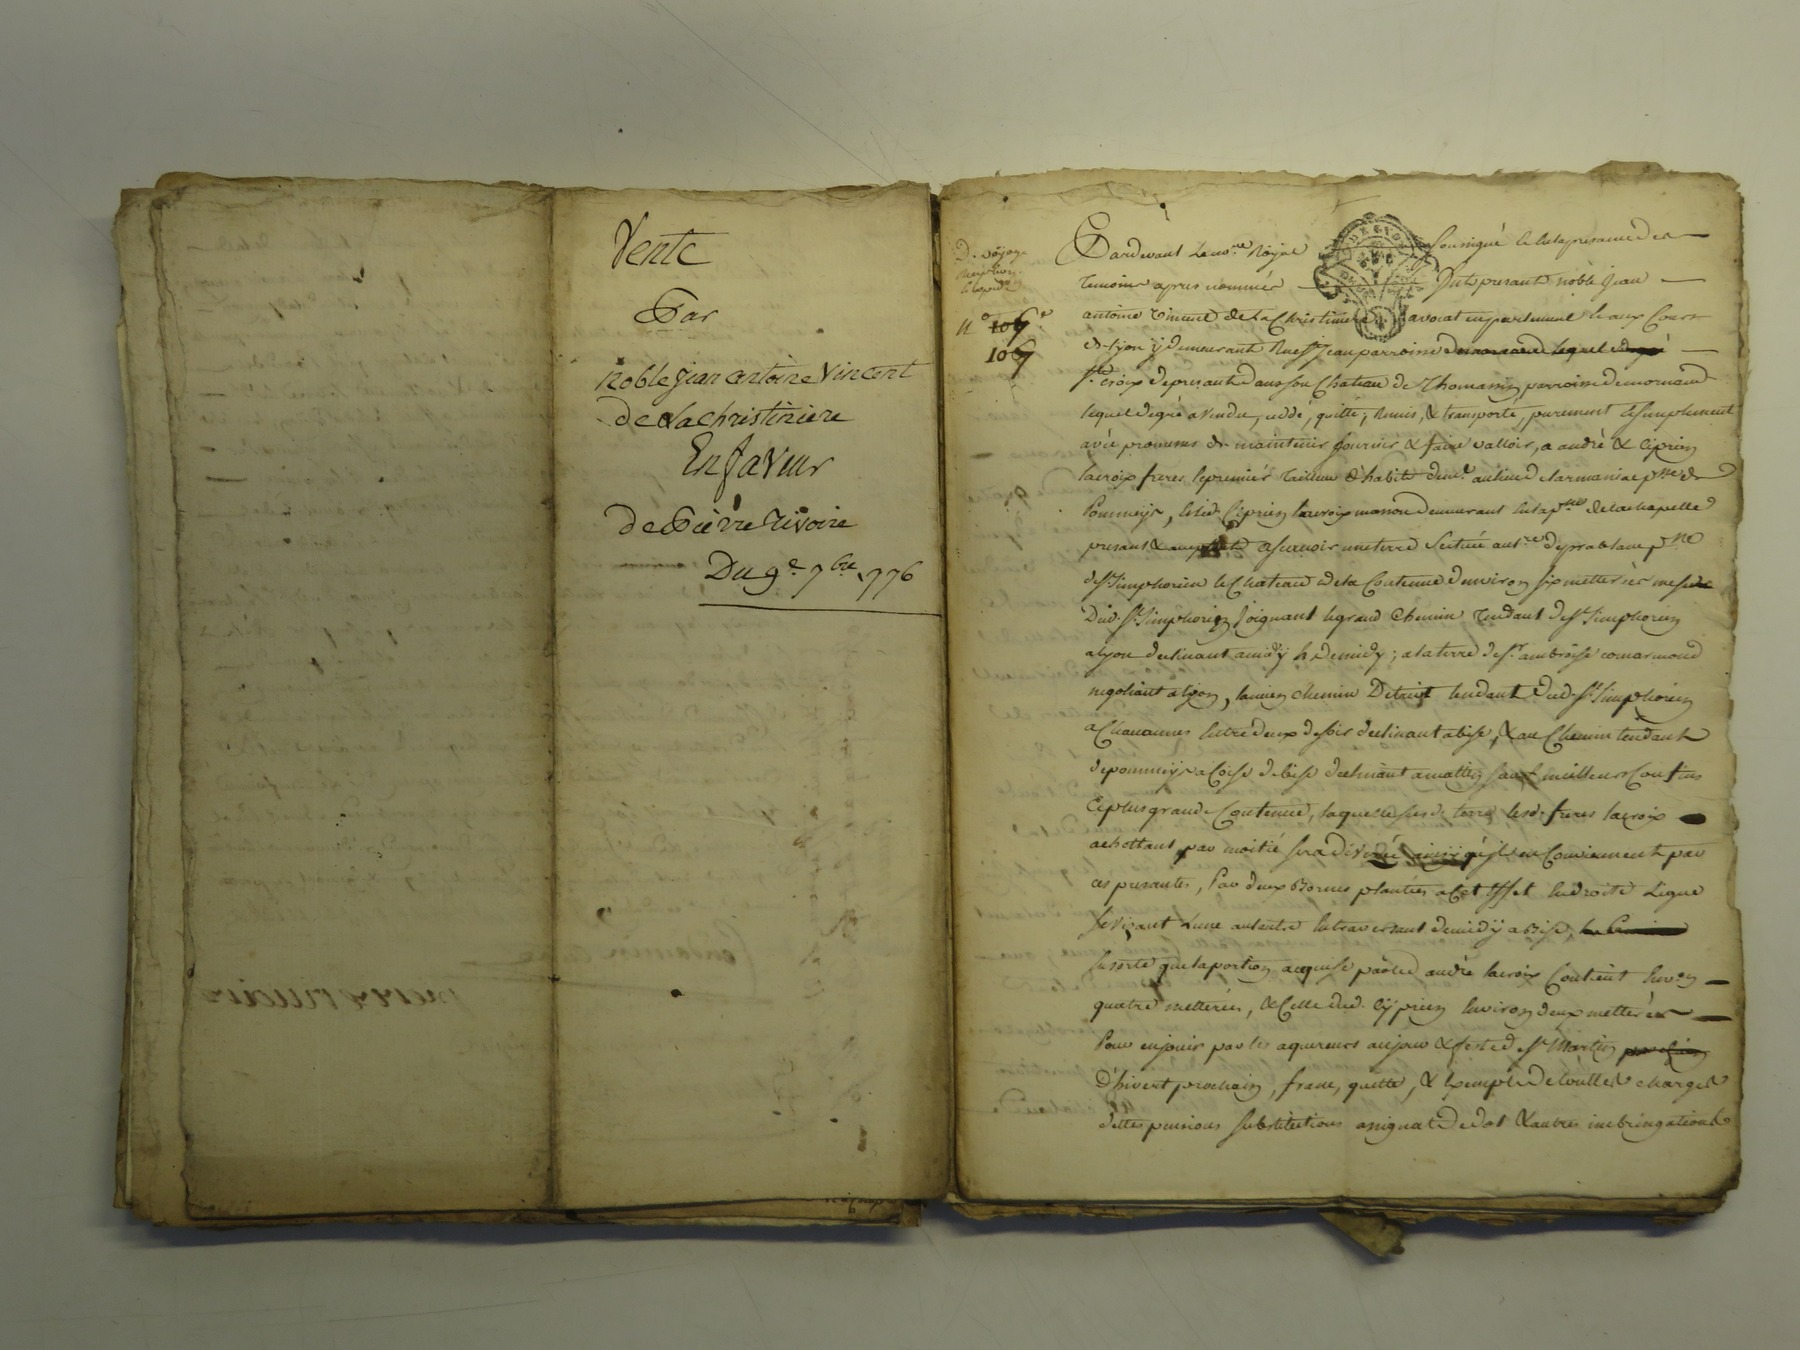 Vente
Par
noble jean antoine Vincent
de Lachristiniere
En faveur
de Pierre Rivoire
Du 9e 7bre 1776
n° 106e
106
Pardevant le no.re Royal soussigné & les presance des
temoins apres nommés fut presant noble jean
antoine vincent de la Christiniere avocat en parlement & aux Cours
de lyon y demeurant Rue St Jean parroisse de mornand lequel de gré
Ste croix de presant dans son Chateau de Thomassin parroisse de mornand
lequel de gré a vendu, ceddé, quitté, Remis, & transporté, purement & simplement
avec promesses de maintenir fournir & faire valloir, a andré & Ciprien
lacroix freres le premier Tailleur d'habits dem.t au lieu de larmaniac p.sse de
Pommeys, & led. Ciprien lacroix masson demeurant en la p.sse de la chapelle
presant & acceptant ascavoir une terre scituée au t.re p.sse
de St Simphorien le Chateau de la Contenue d'environ six metterées mesure
Dud. St Simphorien joignant le grand Chemin Tendant de St Simphorien
a lyon declinant a midy ; a la terre de Sr ambroise comarmond
negotiant a lyon, lancien chemin Detruit tendant dud. St Simphorien
a Chavannes entre deux de soir declinant a bise, & au Chemin tendant
de pommeys a Coise de bise declinant a mattin sauf meilleurs Confins
& plus grande Contenue, laquelle susd. terre lesd. freres lacroix
achettant par moitié sera divisée ainsi qu'ils en Conviennent par
ces presantes, Par deux Bornes plantées a Cet Effet en droite Ligne
se visant L'une autre en traversant de midy a Bise,
en sorte que la portion acquise par led. andré lacroix Contient env.on
quatre metterées, & Celle dud. Cyprien Environ deux metterées
Pour en jouir par les aquereurs au jour & feste de St Martin prochain
D'hivert prochain, franc, quitte, & Exempte de touttes charges
dettes pensions substitutions assignat de dot & autres